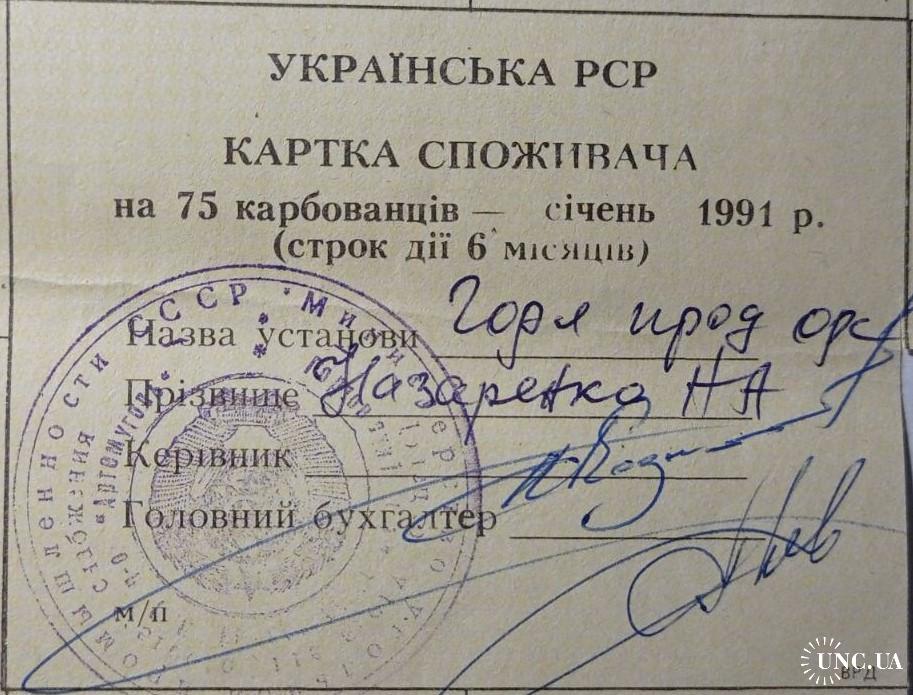 УКРАЇНСЬКА РСР
КАРТКА СПОЖИВАЧА
на 75 карбованців — січень 1991 р.
(строк дії 6 місяців)
Назва установи Горл прод орс
Прізвище Назаренко Н А
Керівник
Головний бухгалтер
м/п
СССР * Мин
снабжения
"Артемуголь"
ВРД
UNC.UA